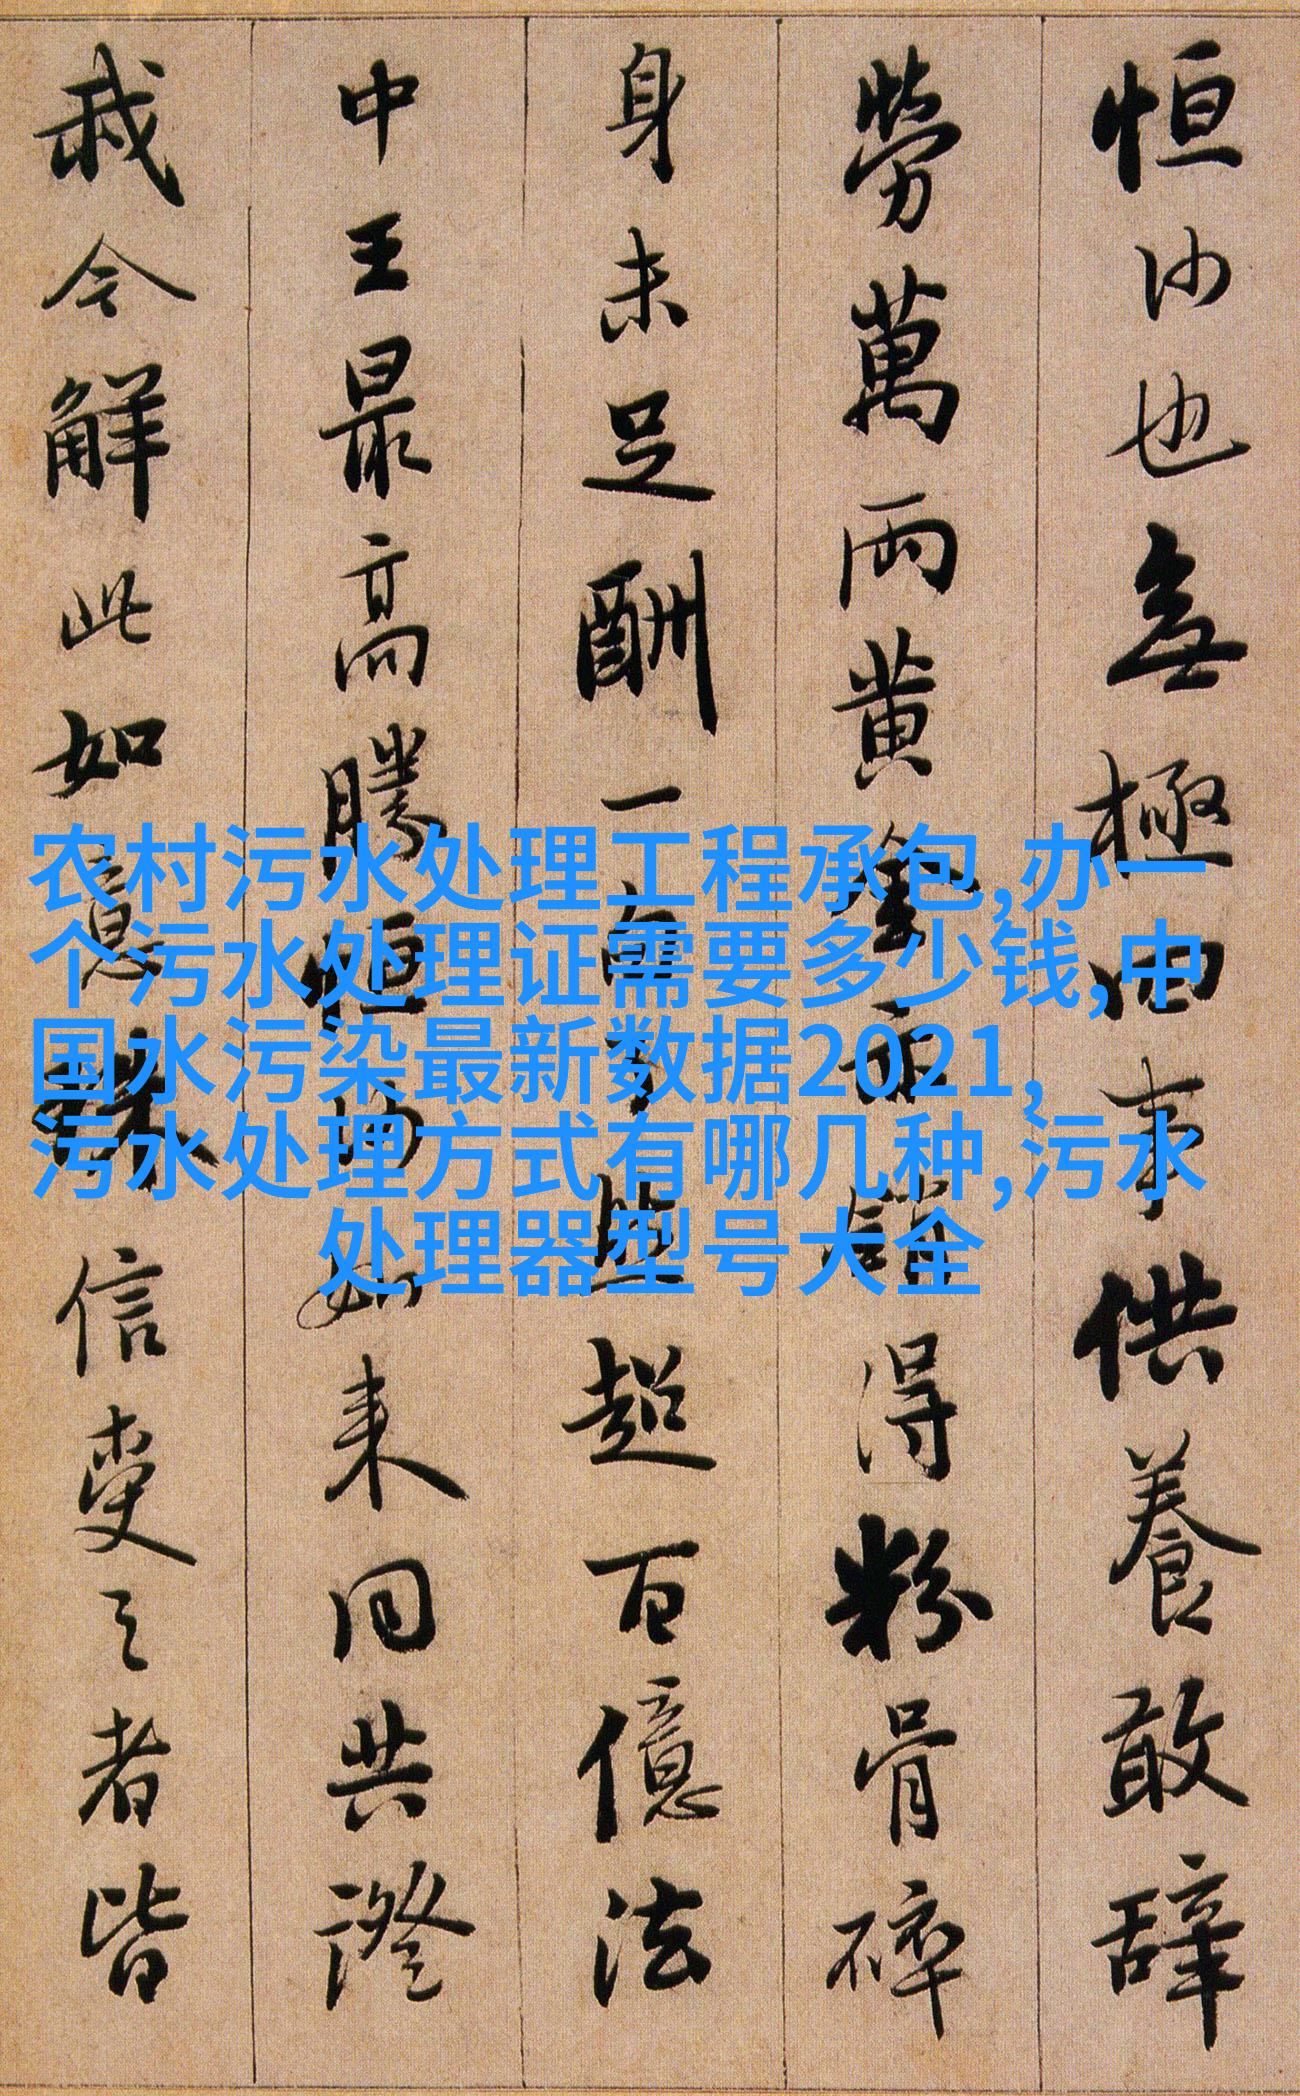 恒沙也無極四事供養敢辞
勞萬兩黄金亦銷得粉骨碎
身未足酬一句了然超百億法
中王最高勝恒沙如来同共證
我今解此如意珠信受之者皆
农村污水处理工程承包,办一
个污水处理证需要多少钱,中
国水污染最新数据2021,
污水处理方式有哪几种,污水
处理器型号大全